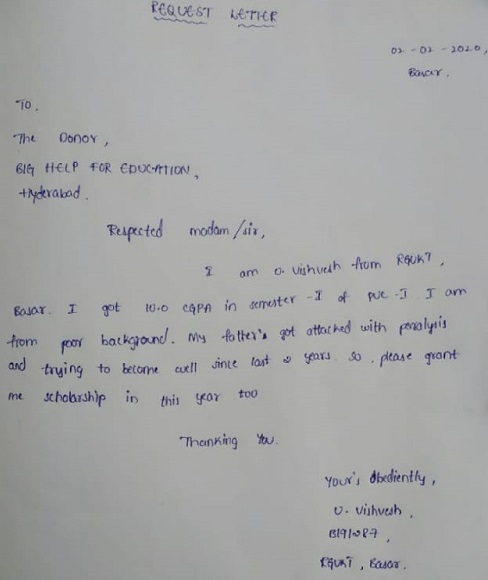 REQUEST LETTER
02-02-2020,
Basar.
TO,
The Donor,
BIG HELP FOR EDUCATION,
Hyderabad.
Respected madam/sir,
I am U. Vishvesh from RGUKT,
Basar. I got 10.0 CGPA in semester-I of PUC-I. I am
from poor background. My fatter's got attacked with penalysis
and trying to become well since last 2 years. so, please grant
me scholarship in this year too
Thanking You.
Your's Obediently,
U. Vishvesh,
RGUKT, Basar.